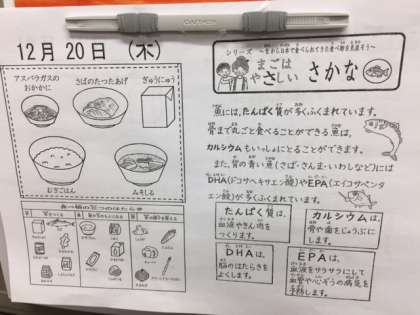 12月20日 (木)
アスパラガスの
おかかに
さばのたつたあげ
ぎゅうにゅう
むぎごはん
シリーズ
まごは
やさしい
さかな
魚には、たんぱく質が多くふくまれています。
骨まで丸ごと食べることができる魚は、
カルシウムもいっしょにとることができます。
また、質の青い魚(さば・さんま・いわしなど)には
DHA(ドコサヘキサエン酸)やEPA(エイコサペンタ
エン酸)が多くふくまれています。
たんぱく質は、
血液やきん肉を
つくります。
カルシウムは、
骨や歯をじょうぶに
します。
DHAは、
脳のはたらきを
よくします。
EPAは、
血液をサラサラにして
血管や心ぞうの病気を
予防します。